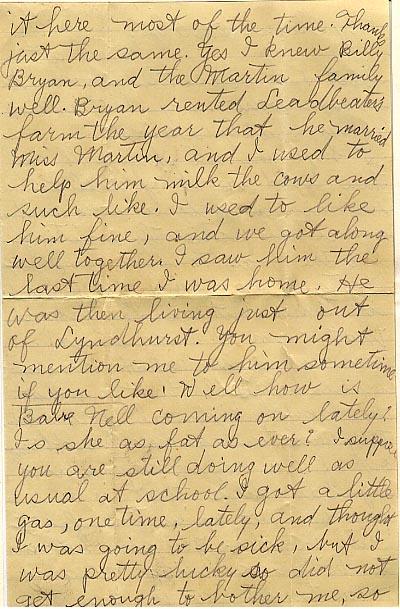 it here most of the time. Thanks
just the same. Yes I knew Billy
Bryan, and the Martin family
well. Bryan rented Leadbeaters
farm the year that he married
Miss Martin, and I used to
help him milk the cows and
such like. I used to like
him fine, and we got along
well together. I saw him the
last time I was home. He
was then living just out
of Lyndhurst. You might
mention me to him sometime
if you like! Well how is
Nell coming on lately?
Is she as fat as ever? I suppose
you are still doing well as
usual at school. I got a little
gas, one time, lately, and thought
I was going to be sick, but I
was pretty lucky so did not
get enough to bother me, so